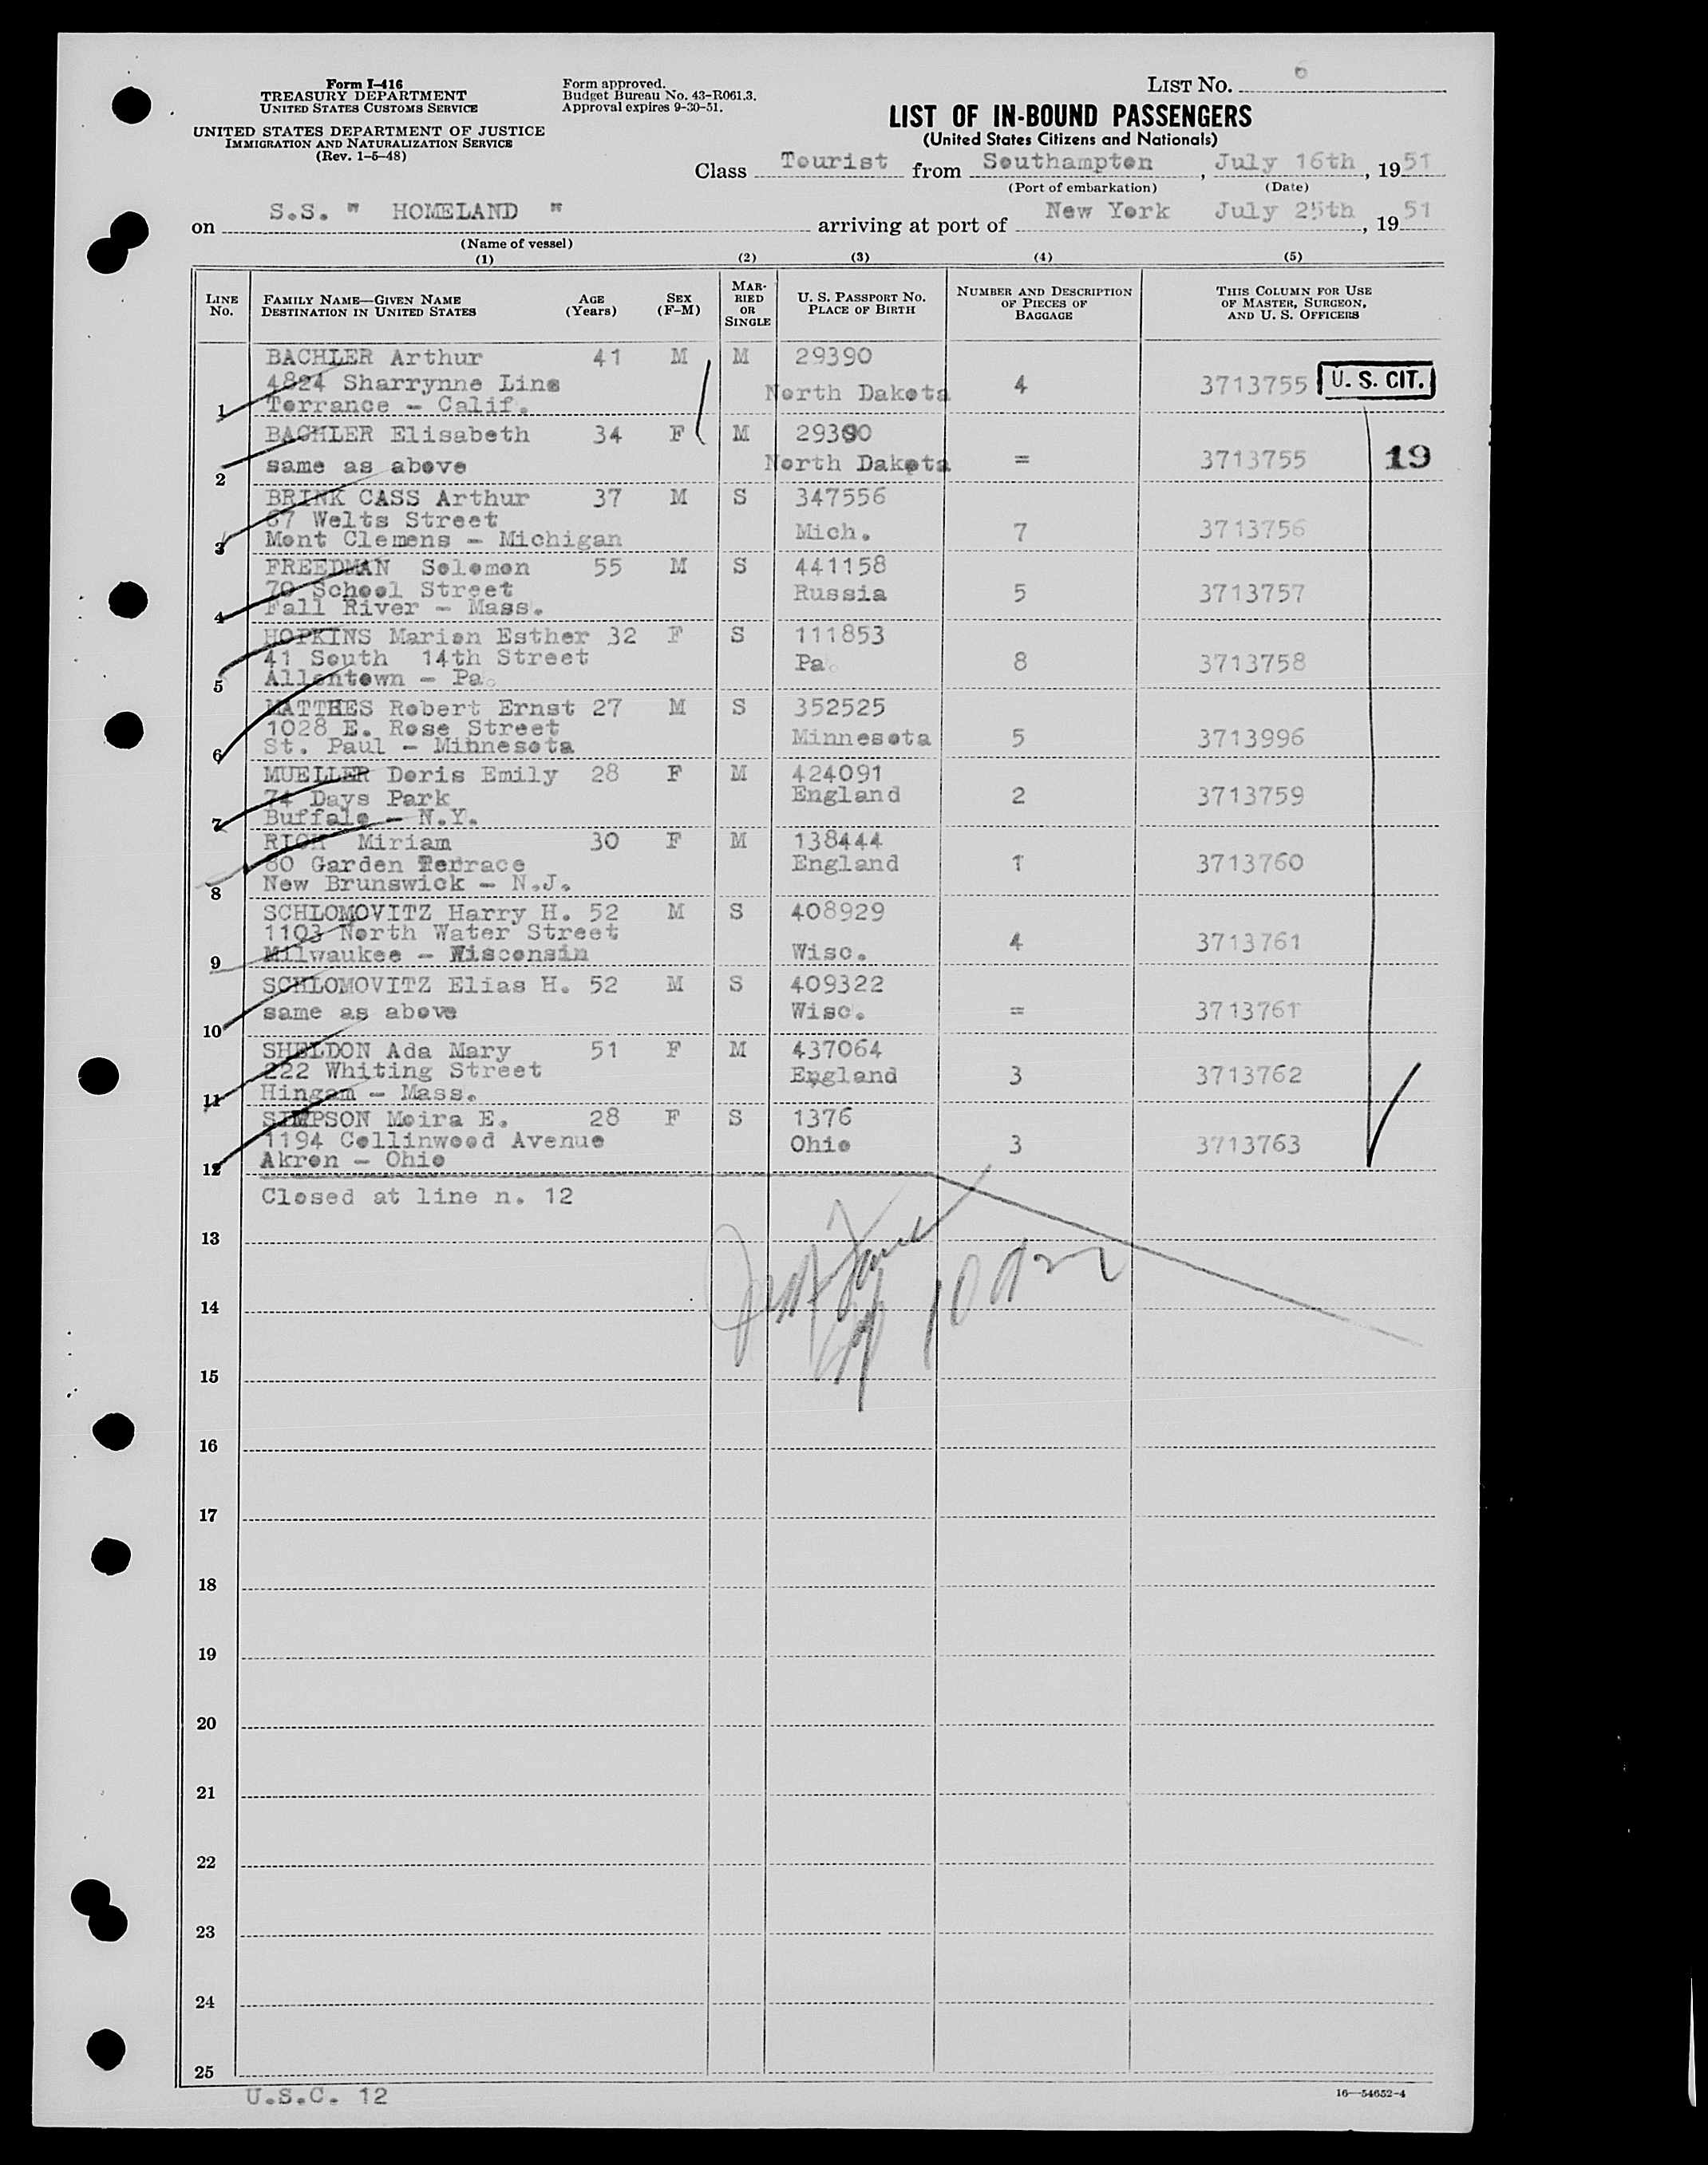 Form I-416
TREASURY DEPARTMENT
UNITED STATES CUSTOMS SERVICE
UNITED STATES DEPARTMENT OF JUSTICE
IMMIGRATION AND NATURALIZATION SERVICE
(Rev. 1-5-48)
Form approved.
Budget Bureau No. 43-R061.3.
Approval expires 9-30-51.
LIST NO. 6
LIST OF IN-BOUND PASSENGERS
(United States Citizens and Nationals)
Class Tourist from Southampton, July 16th, 1951
(Port of embarkation) (Date)
on S.S. " HOMELAND " arriving at port of New York July 25th, 1951
(Name of vessel)
(1) (2) (3) (4) (5)
LINE NO. FAMILY NAME—GIVEN NAME DESTINATION IN UNITED STATES AGE (Years) SEX (F-M) MARRIED OR SINGLE U. S. PASSPORT NO. PLACE OF BIRTH NUMBER AND DESCRIPTION OF PIECES OF BAGGAGE THIS COLUMN FOR USE OF MASTER, SURGEON, AND U. S. OFFICERS
BACHLER Arthur 41 M M 29390
4824 Sharrynne Line North Dakota 4 3713755 U. S. CIT.
1 Torrance - Calif.
BACHLER Elisabeth 34 F M 29390
2 same as above North Dakota = 3713755 19
BRINK CASS Arthur 37 M S 347556
67 Welts Street
3 Mont Clemens - Michigan Mich. 7 3713756
FREEDMAN Solomon 55 M S 441158
70 School Street Russia 5 3713757
4 Fall River - Mass.
HOPKINS Marion Esther 32 F S 111853
41 South 14th Street Pa. 8 3713758
5 Allentown - Pa.
MATTHES Robert Ernst 27 M S 352525
1028 E. Rose Street Minnesota 5 3713996
6 St. Paul - Minnesota
MUELLER Doris Emily 28 F M 424091
74 Days Park England 2 3713759
7 Buffalo - N.Y.
RICH Miriam 30 F M 138444
80 Garden Terrace England 1 3713760
8 New Brunswick - N.J.
SCHLOMOVITZ Harry H. 52 M S 408929
1103 North Water Street
9 Milwaukee - Wisconsin Wisc. 4 3713761
SCHLOMOVITZ Elias H. 52 M S 409322
10 same as above Wisc. = 3713761
SHELDON Ada Mary 51 F M 437064
222 Whiting Street England 3 3713762
11 Hingam - Mass.
SIMPSON Moira E. 28 F S 1376
1194 Collinwood Avenue Ohio 3 3713763
12 Akron - Ohio
Closed at line n. 12
13
14
15
16
17
18
19
20
21
22
23
24
25
U.S.C. 12
16—54652-4